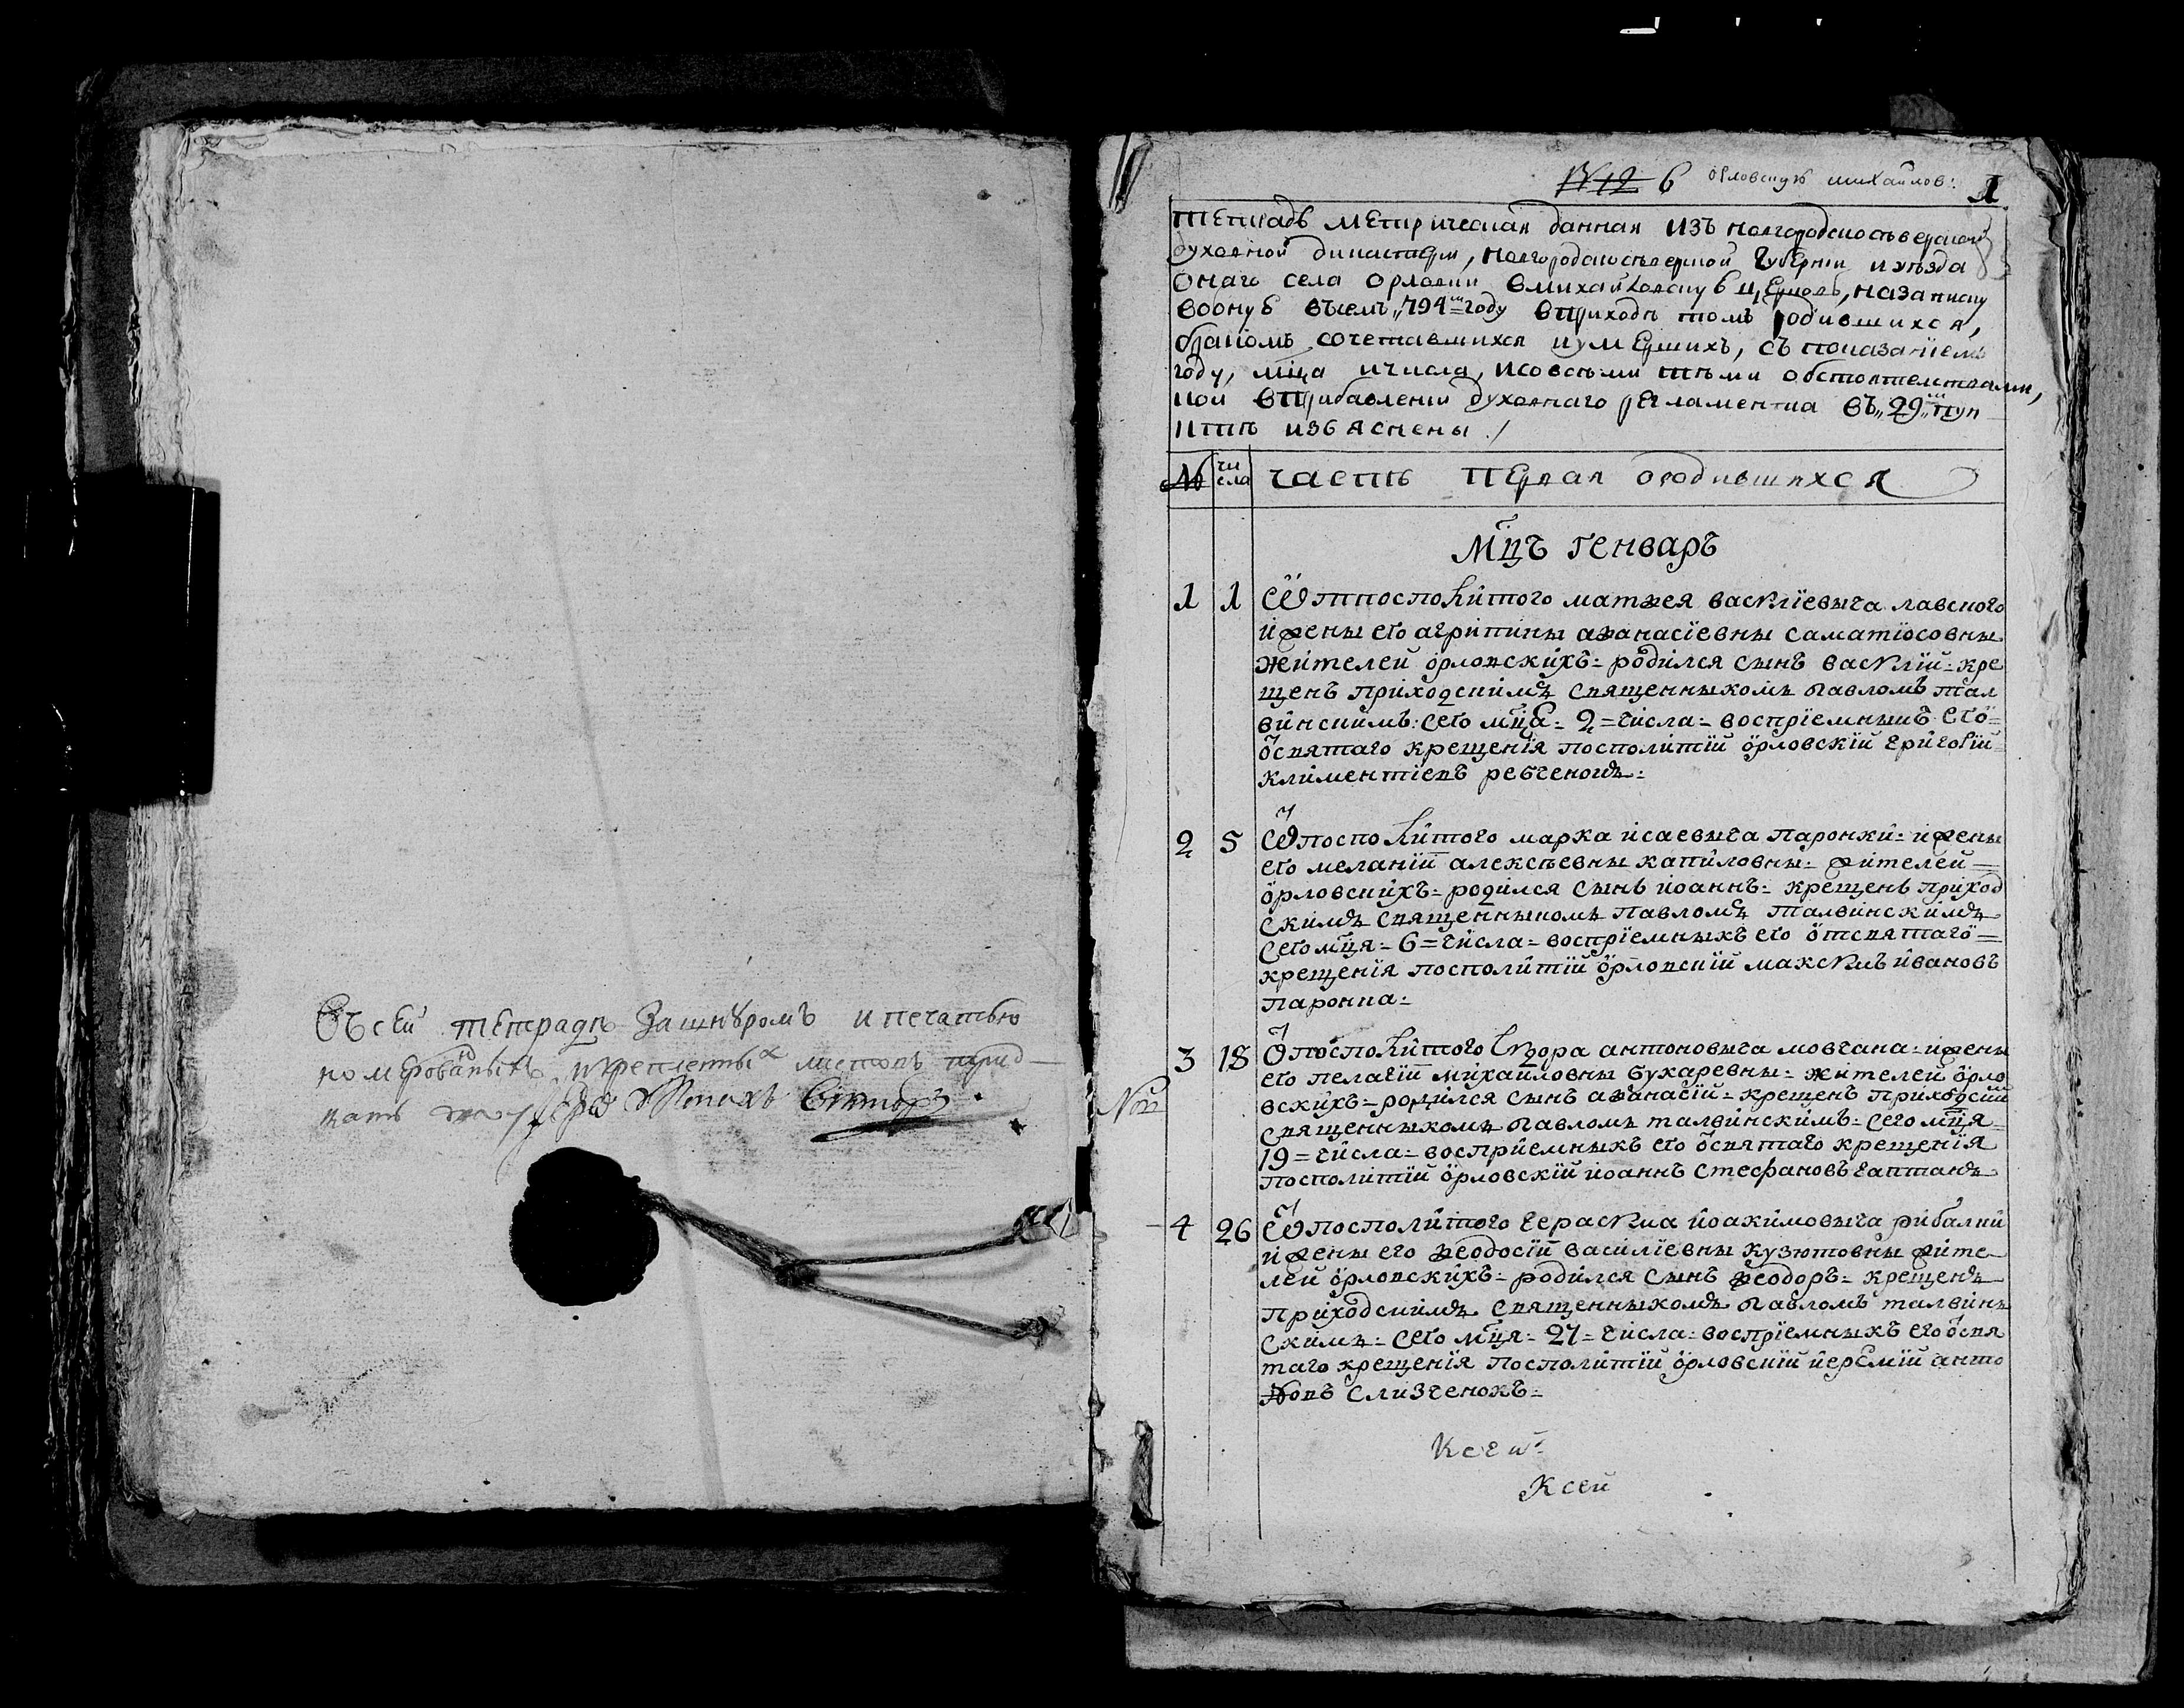 Въ сей тетрадѣ за шнуромъ и печатью
номерованыхъ, укрепленныхъ листовъ
Монахъ Викторъ
№ 12 6 орловскую михайлов: 1
тетрадь метрическая данная изъ новгородскосѣверской
духовной дикастеріи, новгородскосѣверской губерніи и уѣзда
онаго села орловки вмихайловскую церковь, на записку
воону въ семъ „794ᵐ году вприходѣ томъ родившихся,
бракомъ сочетавшихся и умершихъ, съ показаніемъ
году, мц҃а и числа, и совсѣми тѣми обстоятелствами,
кои вприбавленіи духовнаго регламента въ „29„ᵐ пун
ктѣ изъяснены /
№ чи сла часть первая ородившихся
Мц҃ъ генварь
1 1 Ѿт посполитого матѳея василіевича лавского
и жены его агрипины аѳанасіевны саматіосовны
жителей орловскихъ = родился сынъ василій = кре
щенъ приходскимъ священникомъ павломъ тал
винскимъ: сего мц҃а = 2 = числа = воспріемникъ его =
ѿ святаго крещенія посполитій орловскій григорій
климентіевъ ребченокъ =
2 5 Ѿ посполитого марка исаевича паронки = и жены
его меланіи алексѣевны капиловны = жителей =
орловскихъ = родился сынъ іоаннъ = крещенъ приход
скимъ священникомъ павломъ талвинскимъ
сего мц҃я = 6 = числа = воспріемникъ его отсвятаго =
крещенія посполитій орловскій максимъ ивановъ
паронка =
3 18 Ѿ посполитого антоновича мовчана = и жены
его пелагіи михайловны бухаревны = жителей орло
вскихъ = родился сынъ аѳанасій = крещенъ приходскій
священникомъ павломъ талвинскимъ = сего мц҃я =
19 = числа = воспріемникъ его ѿсвятаго крещенія
посполитій орловскій іоаннъ стефановъ гаптанъ
4 26 Ѿ посполитого герасима іоакимовича рибалки
и жены его ѳеодосіи василіевны кузютовны жите
лей орловскихъ = родился сынъ ѳеодоръ = крещенъ
приходскимъ священникомъ павломъ талвинъ
скимъ = сего мц҃я = 27 = числа = воспріемникъ его ѿсвя
таго крещенія посполитій орловскій іеремій анто
новъ слизченокъ =
Ксей